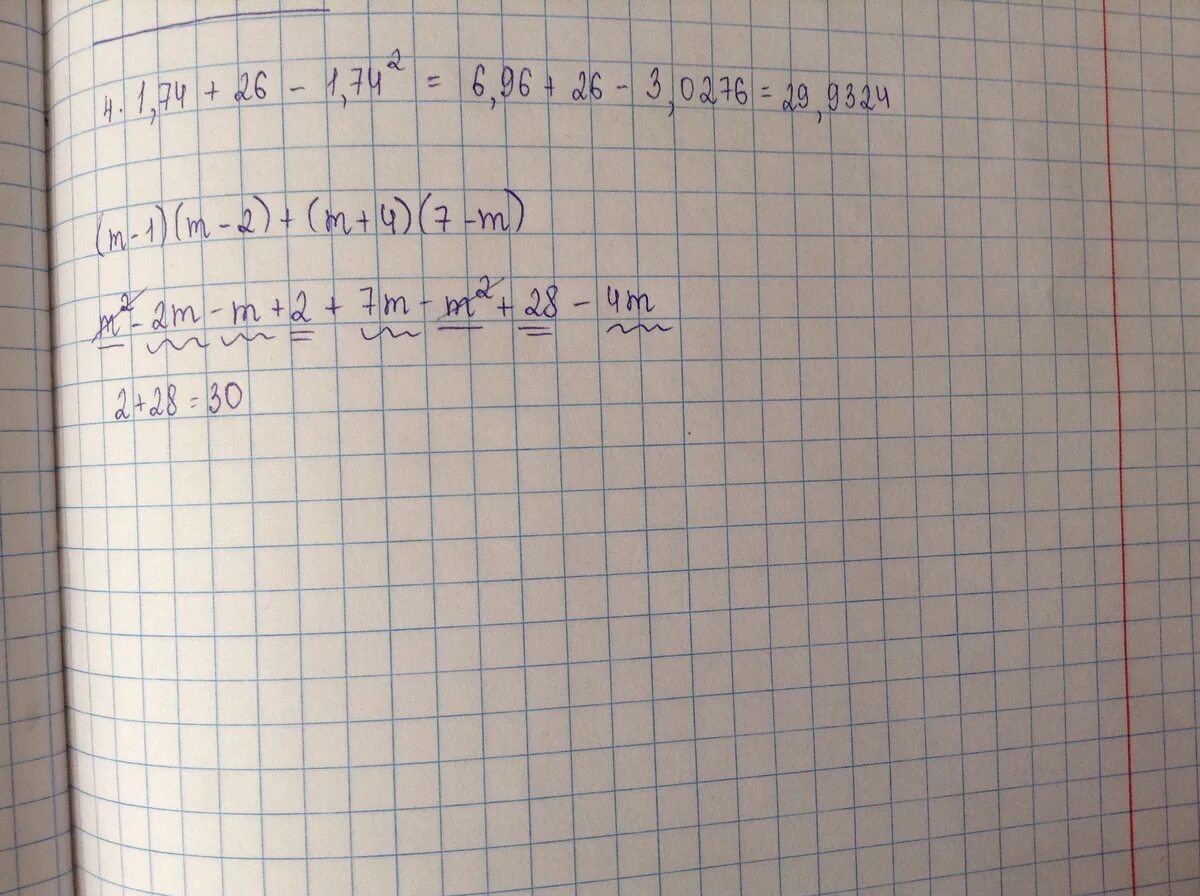 4 · 1,74 + 26 - 1,74² = 6,96 + 26 - 3,0276 = 29,9324
(m-1)(m-2) + (m+4)(7-m)
m² - 2m - m + 2 + 7m - m² + 28 - 4m
2+28 = 30